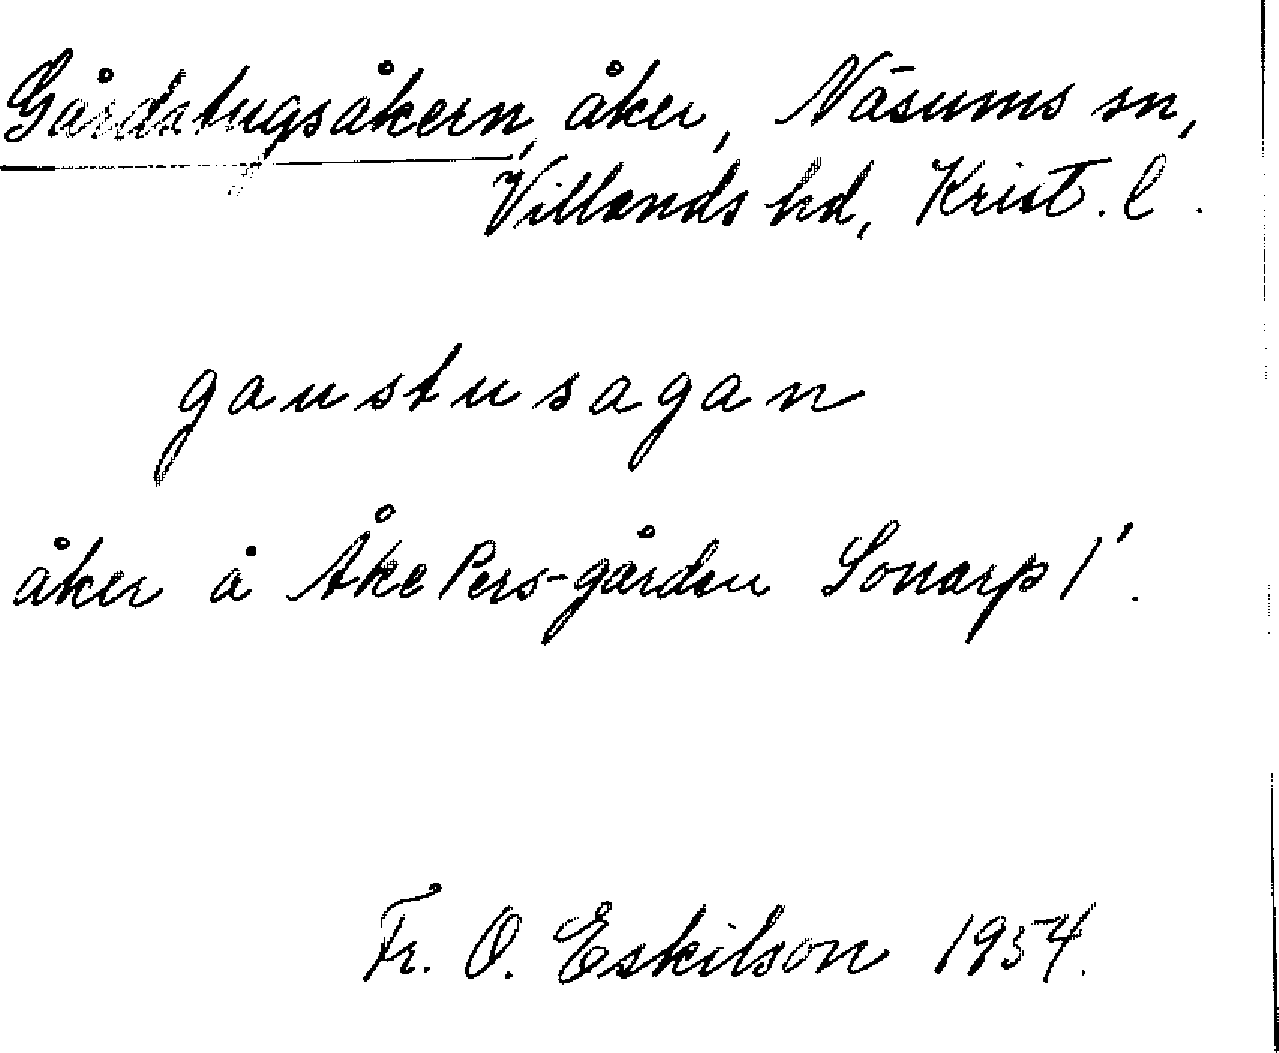 Gårdstugsåkern, åker, Näsums sn,
Villands hd, Krist. l.
gaustusagan
åker å Åke Pers-gården Sonarp 1'.
Fr. O. Eskilson 1954.